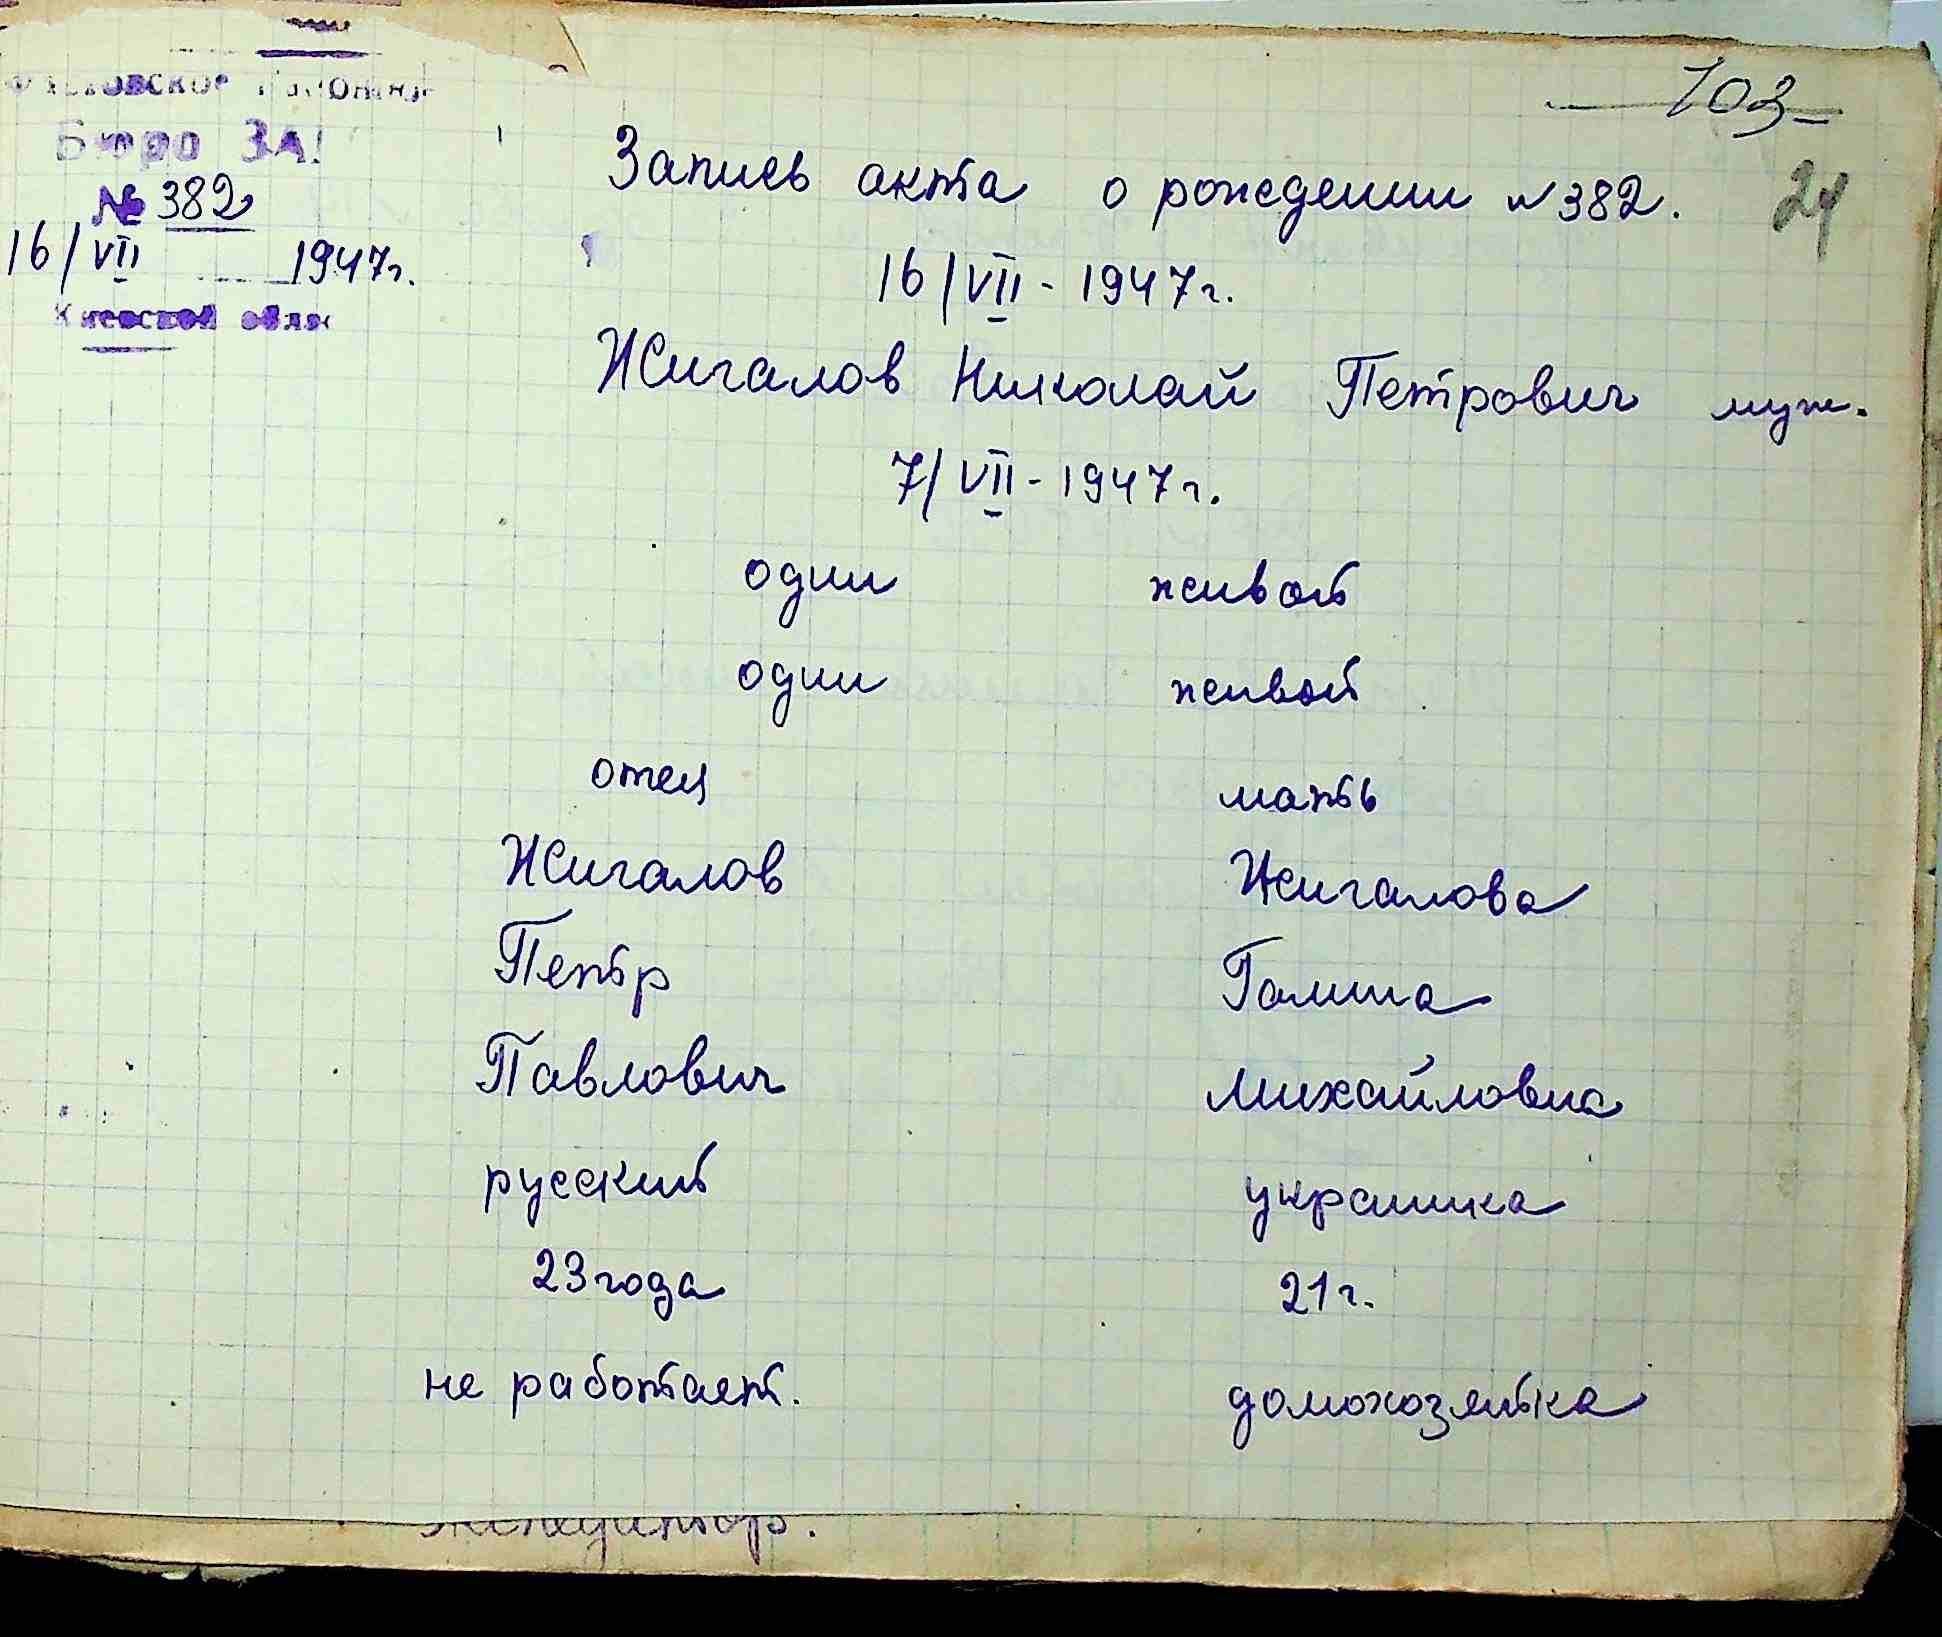 103
24
Бюро ЗА
№ 382
16/VII 1947г.
Киевской обла
Запись акта о рождении №382.
16/VII - 1947г.
Жигалов Николай Петрович муж.
7/VII - 1947г.
один живой
один живой
отец мать
Жигалов Жигалова
Петр Галина
Павлович Михайловна
русский украинка
23 года 21 г.
не работает. домохозяйка